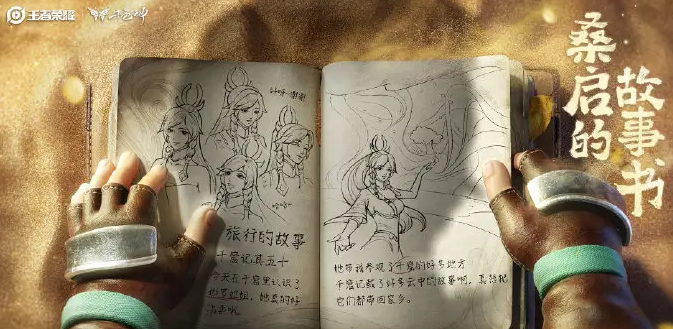 王者荣耀
桑启的
故事书
好呀·谢谢
哈哈~
旅行的故事
千窟记其五十
今天在千窟里认识了
她真的好
她带我参观了千窟的好多地方
千窟记载了好多云中的故事啊，真想把
它们都带回家乡。